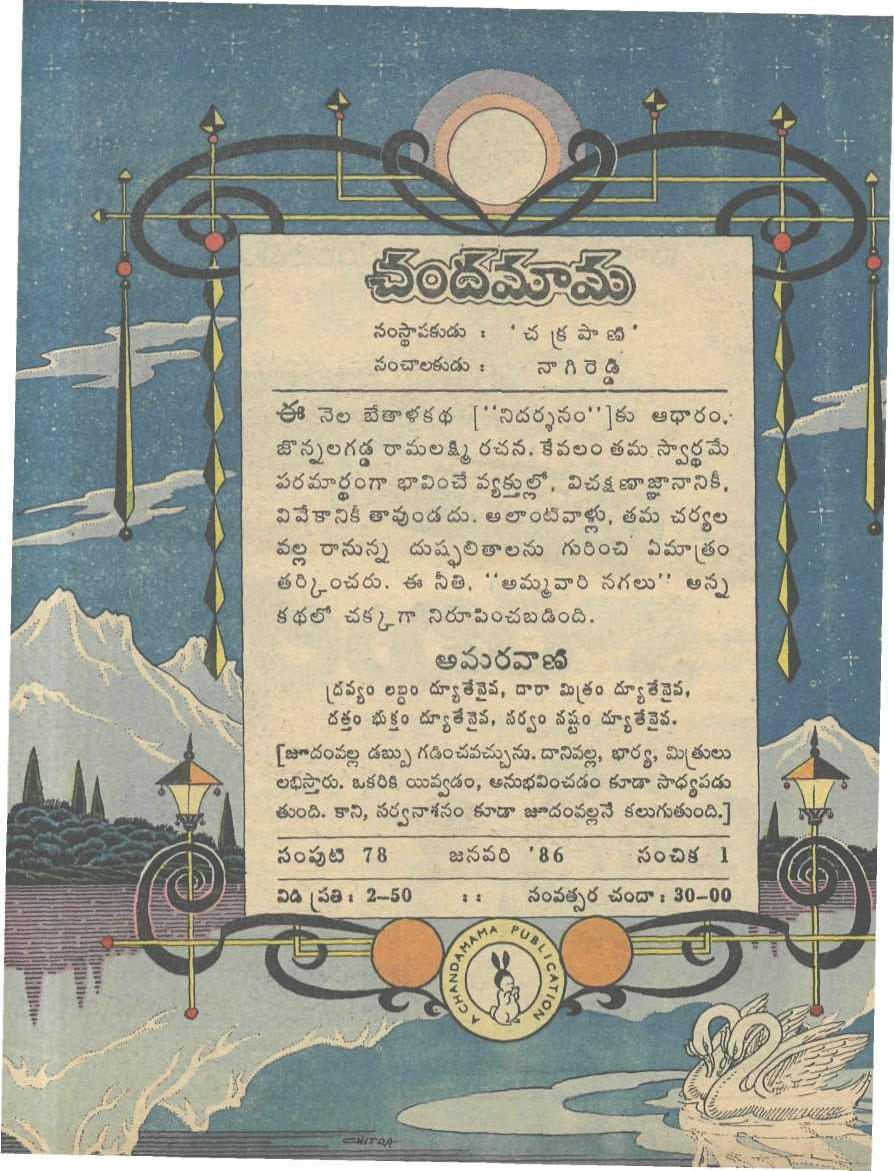 చందమామ
సంస్థాపకుడు : 'చ క్ర పా ణి'
సంచాలకుడు : నా గి రె డ్డి
ఈ నెల బేతాళకథ [''నిదర్శనం'']కు ఆధారం,
జొన్నలగడ్డ రామలక్ష్మి రచన. కేవలం తమ స్వార్థమే
పరమార్థంగా భావించే వ్యక్తుల్లో, విచక్షణాజ్ఞానానికీ,
వివేకానికీ తావుండదు. అలాంటివాళ్లు, తమ చర్యల
వల్ల రానున్న దుష్ఫలితాలను గురించి ఏమాత్రం
తర్కించరు. ఈ నీతి, ''అమ్మవారి నగలు'' అన్న
కథలో చక్కగా నిరూపించబడింది.
అమరవాణి
ద్రవ్యం లబ్ధం ద్యూతేనైవ, దారా మిత్రం ద్యూతేనైవ,
దత్తం భుక్తం ద్యూతేనైవ, సర్వం నష్టం ద్యూతేనైవ.
[జూదంవల్ల డబ్బు గడించవచ్చును. దానివల్ల, భార్య, మిత్రులు
లభిస్తారు. ఒకరికి యివ్వడం, అనుభవించడం కూడా సాధ్యపడు
తుంది. కాని, సర్వనాశనం కూడా జూదంవల్లనే కలుగుతుంది.]
సంపుటి 78 జనవరి '86 సంచిక 1
విడి ప్రతి : 2–50 : : సంవత్సర చందా : 30–00
A CHANDAMAMA PUBLICATION
CHITRA